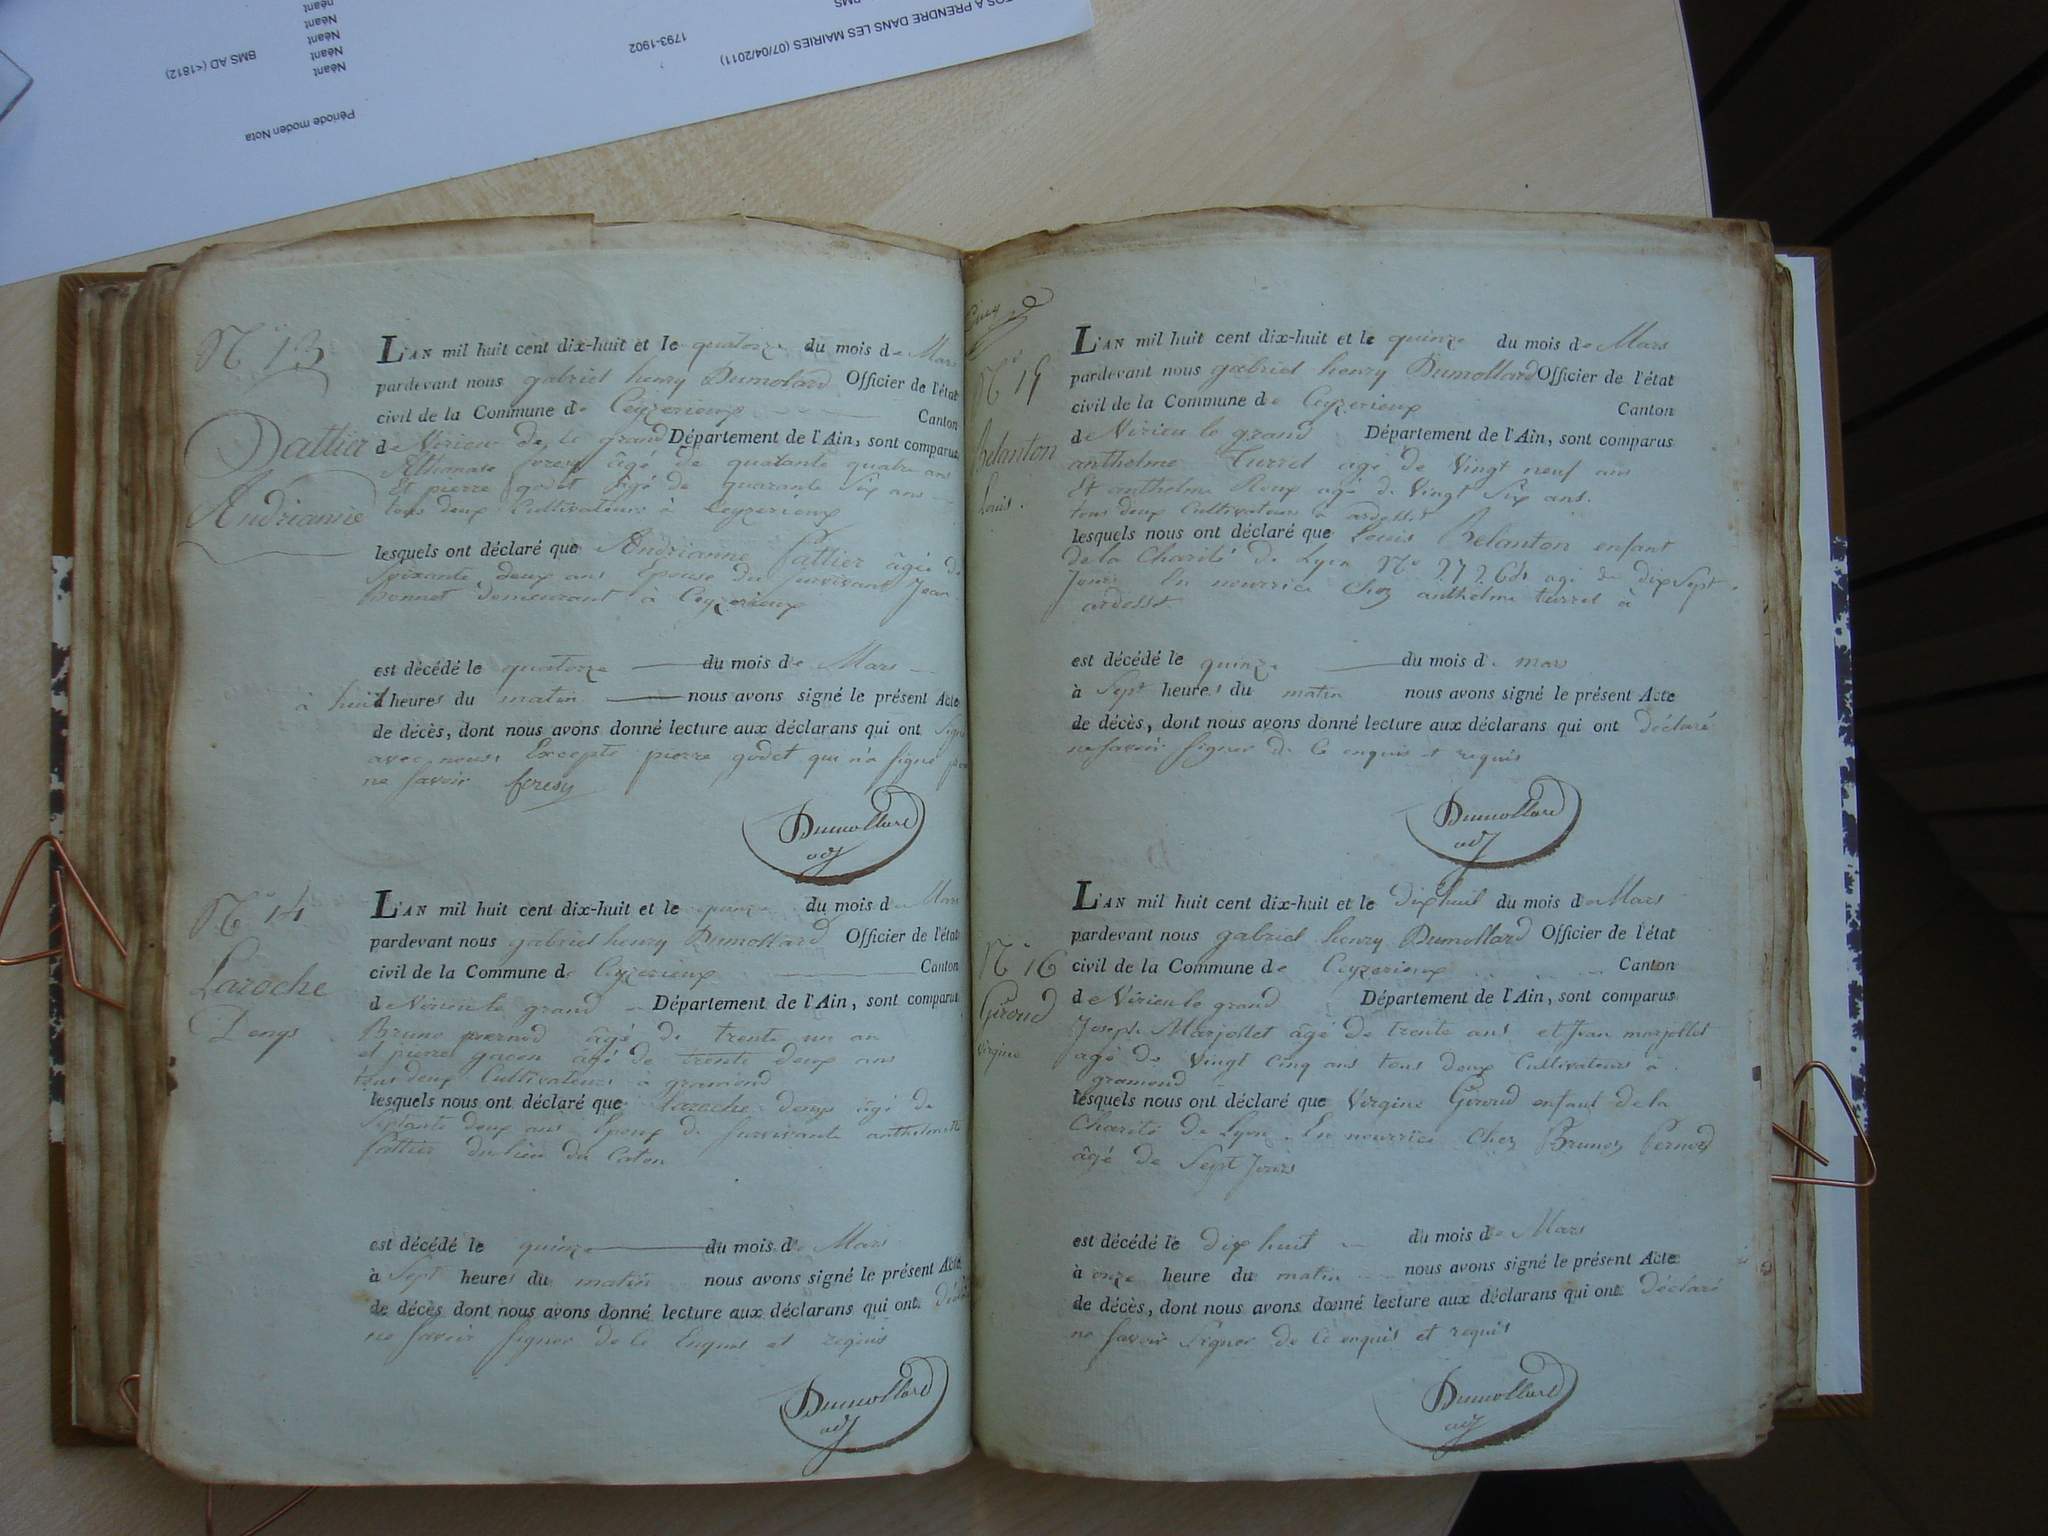 TOS A PRENDRE DANS LES MAIRIES (07/04/2011)
BMS
1793-1902
BMS AD (<1812)
néant
Néant
Néant
Néant
Néant
Période moden Nota
N° 13
Pattier
Andrianne
L'AN mil huit cent dix-huit et le quatorze du mois de Mars
pardevant nous gabriel henry Dumolard Officier de l'état
civil de la Commune de Ceyzerieux Canton
de Virieu de le grand Département de l'Ain, sont comparus
Athanase foresy âgé de quatante quatre ans
Et pierre godet âgé de quarante Six ans
tous deux Cultivateurs à Ceyzerieux
lesquels ont déclaré que Andrianne Pattier âgée de
Soixante deux ans Epouse du survivant Jean
bonnet demeurant à Ceyzerieux
est décédé le quatorze du mois de Mars
à huit heures du matin nous avons signé le présent Acte
de décès, dont nous avons donné lecture aux déclarans qui ont Signé
avec nous Excepté pierre godet qui n'a signé pour
ne savoir foresy
Dumollard
adj
N° 14
Laroche
Denys
L'AN mil huit cent dix-huit et le quinze du mois de Mars
pardevant nous gabriel henry Dumollard Officier de l'état
civil de la Commune de Ceyzerieux Canton
de Virieu le grand Département de l'Ain, sont comparus
Bruno pernod âgé de trente un an
et pierre gacon âgé de trente deux ans
tous deux Cultivateurs à gramond
lesquels nous ont déclaré que Laroche denys âgé de
Septante deux ans Epoux de survivante anthelmette
Pattier du lieu du Caton
est décédé le quinze du mois de Mars
à Sept heures du matin nous avons signé le présent Acte
de décès dont nous avons donné lecture aux déclarans qui ont déclaré
ne savoir signer de ce Enquis et requis
Dumollard
adj
Cinq
N° 15
Belanton
Louis.
L'AN mil huit cent dix-huit et le quinze du mois de Mars
pardevant nous gabriel henry Dumollard Officier de l'état
civil de la Commune de Ceyzerieux Canton
de Virieu le grand Département de l'Ain, sont comparus
anthelme Turrel âgé de Vingt neuf ans
Et anthelme Roux agé de Vingt Six ans.
tous deux Cultivateurs à ardosset
lesquels nous ont déclaré que Louis Belanton enfant
de la Charité de Lyon N° agé de dix Sept
Jours En nourrice chez anthelme turrel à
ardosset
est décédé le quinze du mois de mars
à Sept heures du matin nous avons signé le présent Acte
de décès, dont nous avons donné lecture aux déclarans qui ont déclaré
ne savoir signer de ce enquis et requis
Dumollard
adj
N° 16
Giroud
Virgine
L'AN mil huit cent dix-huit et le dixhuit du mois de Mars
pardevant nous gabriel henry Dumollard Officier de l'état
civil de la Commune de Ceyzerieux Canton
de Virieu le grand Département de l'Ain, sont comparus
Joseph Marjollet âgé de trente ans et Jean marjollet
agé de Vingt cinq ans tous deux Cultivateurs à
gramond
lesquels nous ont déclaré que Virgine Giroud enfant de la
Charité de Lyon En nourrice chez Bruno Pernod
âgé de Sept Jours
est décédé le dix huit du mois de Mars
à onze heure du matin nous avons signé le présent Acte
de décès, dont nous avons donné lecture aux déclarans qui ont Déclaré
ne savoir Signer de ce enquis et requis
Dumollard
adj